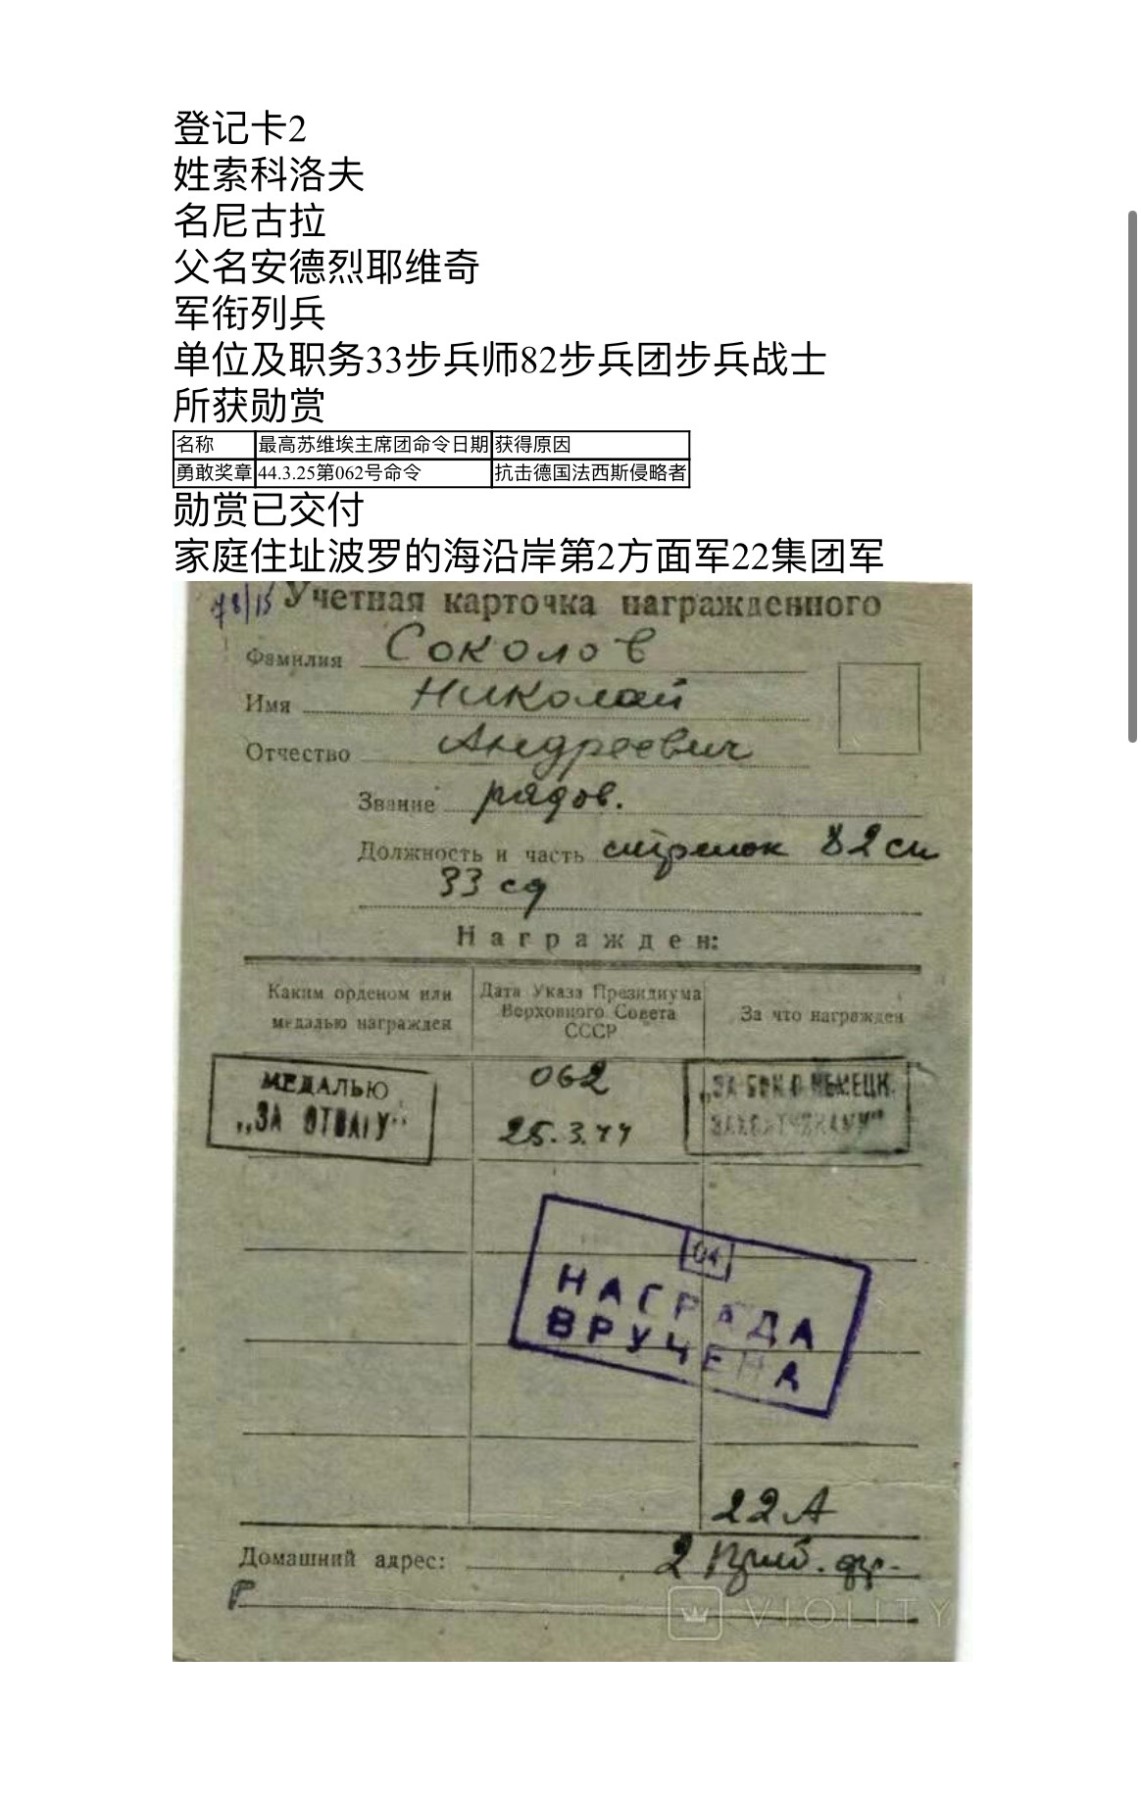 登记卡2
姓索科洛夫
名尼古拉
父名安德烈耶维奇
军衔列兵
单位及职务33步兵师82步兵团步兵战士
所获勋赏
名称 最高苏维埃主席团命令日期 获得原因
勇敢奖章 44.3.25第062号命令 抗击德国法西斯侵略者
勋赏已交付
家庭住址波罗的海沿岸第2方面军22集团军
Учетная карточка награжденного
Фамилия Соколов
Имя Николай
Отчество Андреевич
Звание рядов.
Должность и часть стрелок 82 сп
33 сд
Награжден:
Каким орденом или медалью награжден
Дата Указа Президиума Верховного Совета СССР
За что награжден
МЕДАЛЬЮ
„ЗА ОТВАГУ"
062
25.3.44
„ЗА БОИ С НЕМЕЦК.
ЗАХВАТЧИКАМИ"
04
НАГРАДА
ВРУЧЕНА
22 А
Домашний адрес: 2 Приб. фр.
VIOLITY